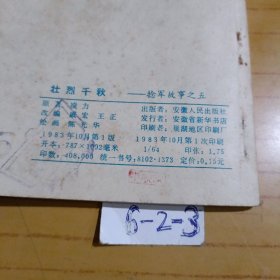 壮烈千秋 ——捻军故事之五
原著 凌力 出版者：安徽人民出版社
改编 戚宏 王正 发行者：安徽省新华书店
绘画 陈光华 印刷者：巢湖地区印刷厂
1983年10月第1版 1983年10月第1次印刷
开本：787×1092毫米 1/64 印张：1.75
印数：408,000 统一书号：8102·1373 定价：0.15元
6-2-3